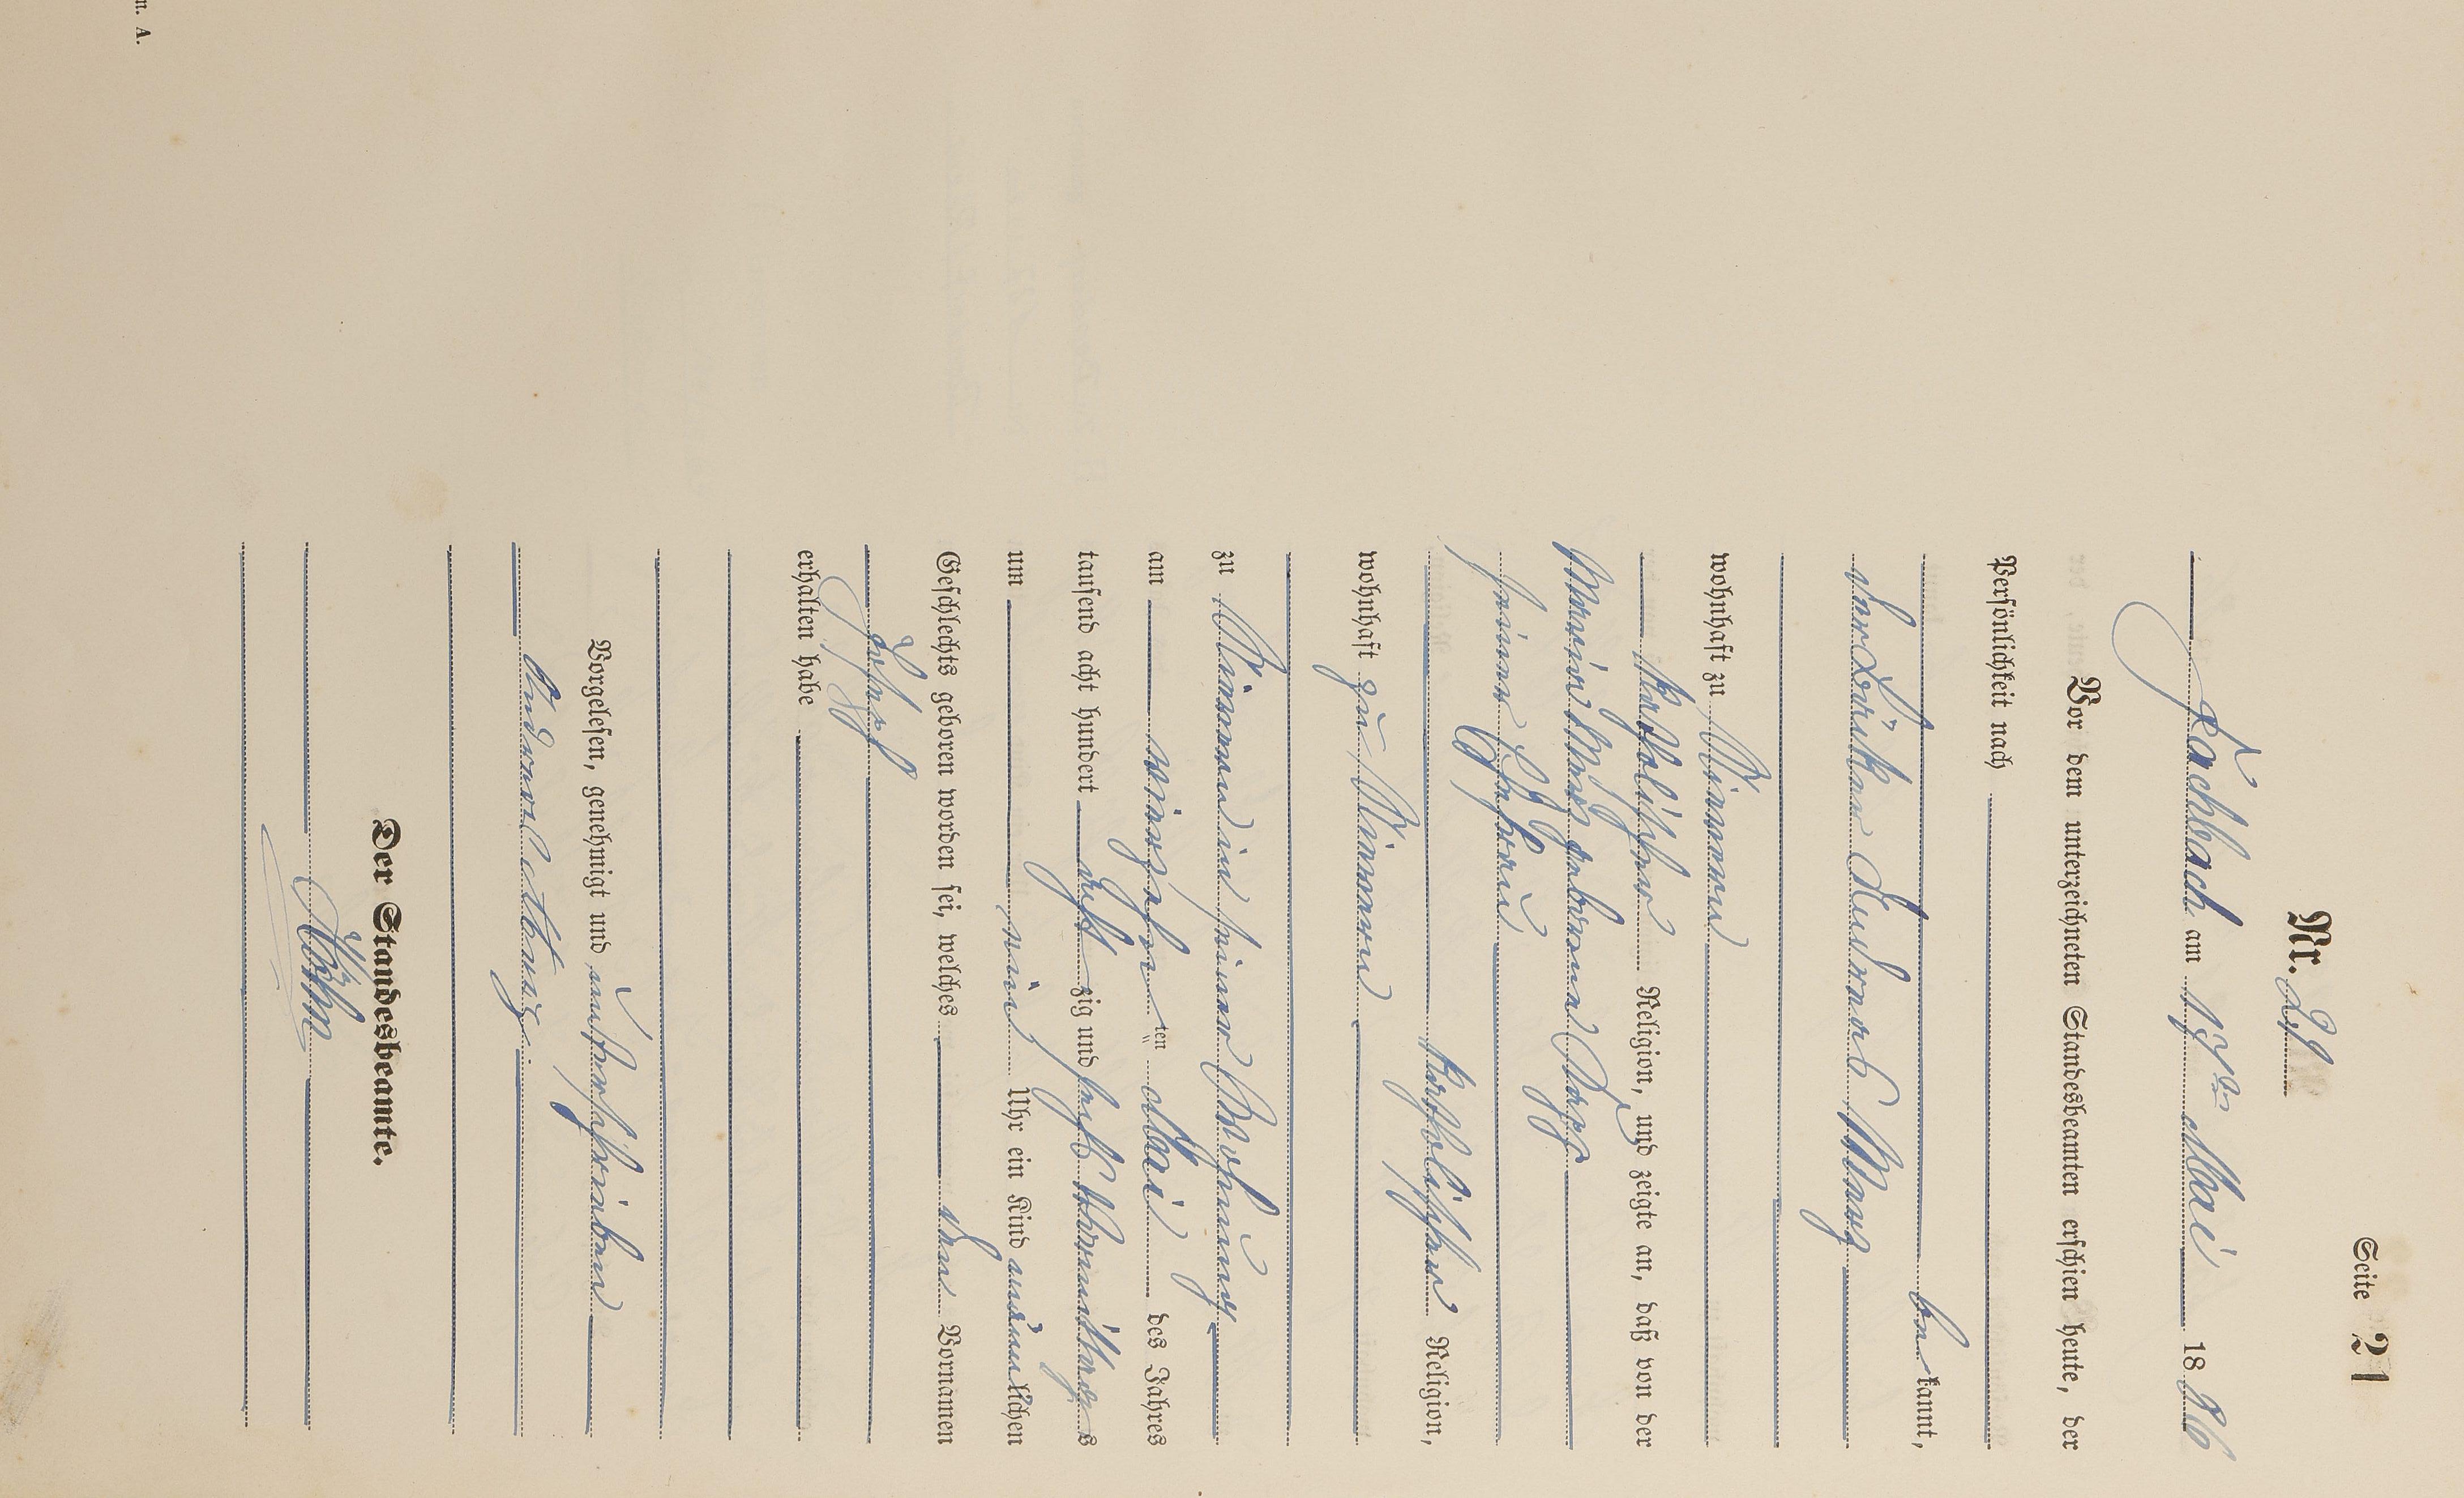 Seite 21
Nr. 29
Fachbach am Mai 1886
Vor dem unterzeichneten Standesbeamten erschien heute, der
Persönlichkeit nach
be kannt,
der
wohnhaft zu Nievern
katholischer Religion, und zeigte an, daß von der
Maria geborene
seiner Ehefrau
katholischer Religion,
wohnhaft zu Nievern
zu Nievern in seiner Wohnung
am vierzehn ten Mai des Jahres
tausend acht hundert acht zig und sechs Vormittag s
um ein Uhr ein Kind männ lichen
Geschlechts geboren worden sei, welches den Vornamen
Joseph
erhalten habe
Vorgelesen, genehmigt und unterschrieben
Der Standesbeamte.
A.